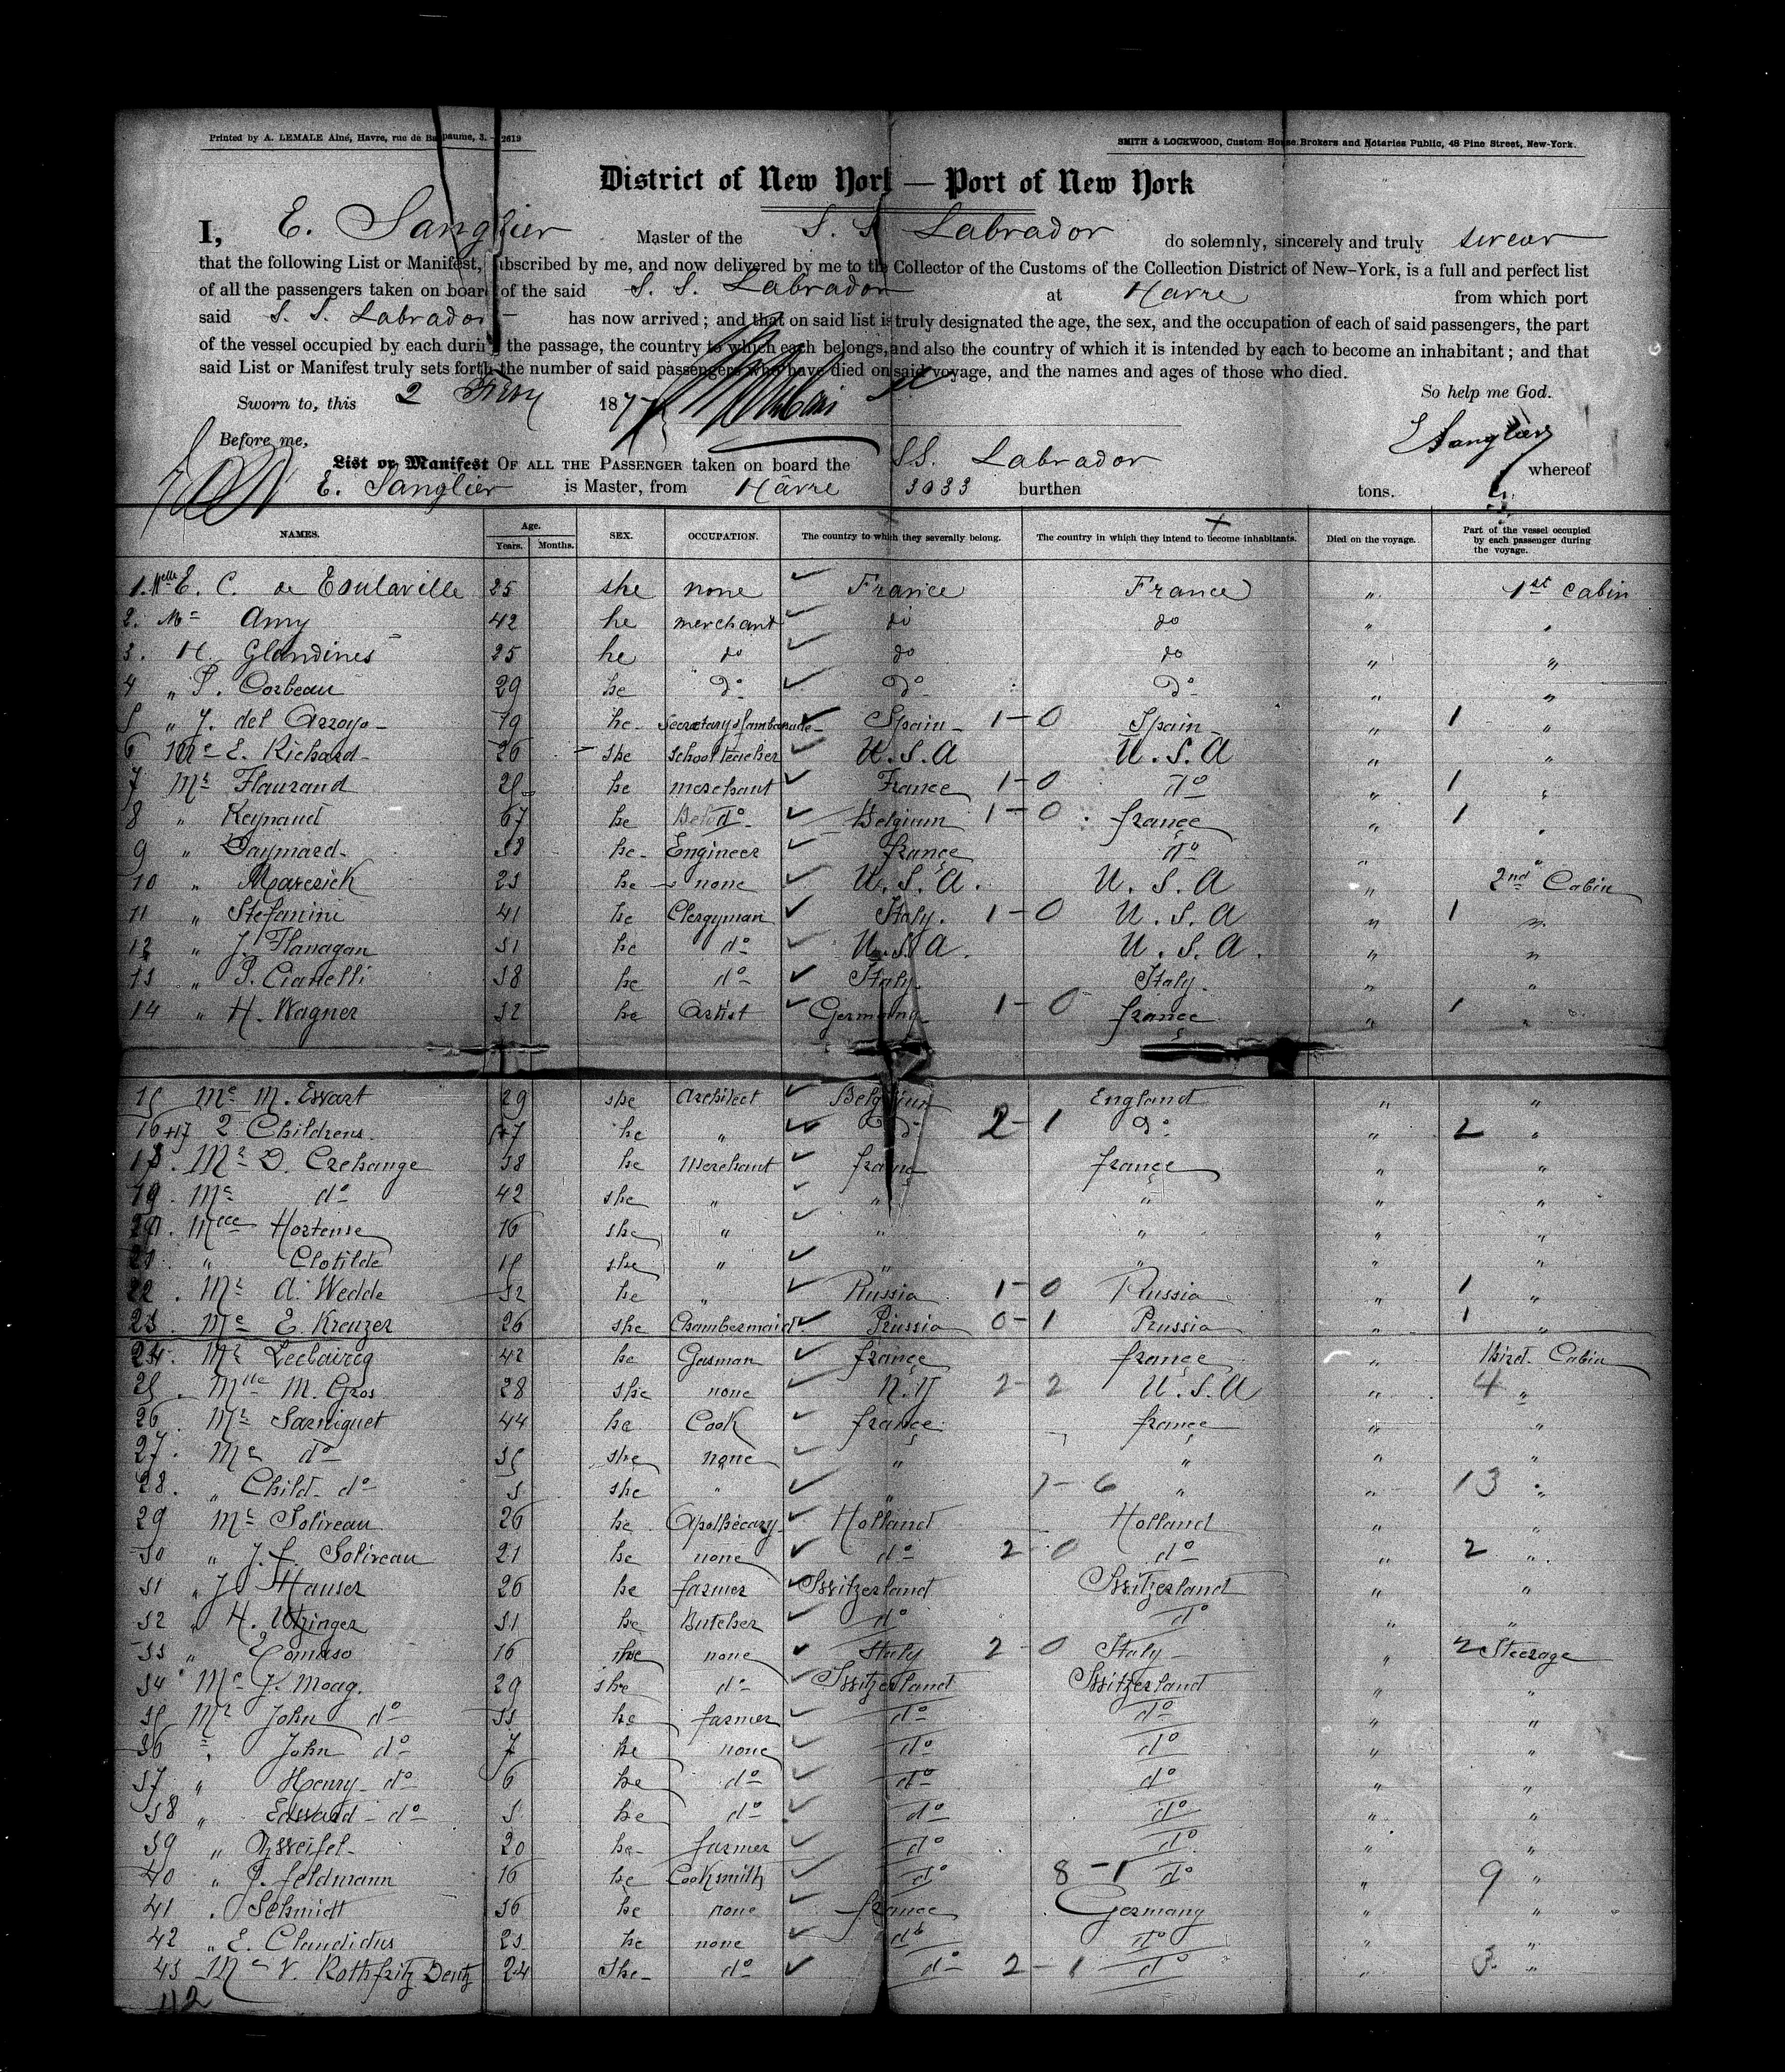 Printed by A. LEMALE Aîné, Havre, rue de Bapaume, 3. - 2619
SMITH & LOCKWOOD, Custom House Brokers and Notaries Public, 48 Pine Street, New-York.
District of New York — Port of New York
I, E. Sanglier Master of the S. S. Labrador do solemnly, sincerely and truly swear
that the following List or Manifest, subscribed by me, and now delivered by me to the Collector of the Customs of the Collection District of New-York, is a full and perfect list
of all the passengers taken on board of the said S. S. Labrador at Havre from which port
said S. S. Labrador has now arrived; and that on said list is truly designated the age, the sex, and the occupation of each of said passengers, the part
of the vessel occupied by each during the passage, the country to which each belongs, and also the country of which it is intended by each to become an inhabitant; and that
said List or Manifest truly sets forth the number of said passengers who have died on said voyage, and the names and ages of those who died.
So help me God.
Sworn to, this 2 1877
Before me,
E Sanglier
List or Manifest OF ALL THE PASSENGER taken on board the SS. Labrador whereof
E. Sanglier is Master, from Havre 3033 burthen tons.
NAMES. Age. Years. Months. SEX. OCCUPATION. The country to which they severally belong. The country in which they intend to become inhabitants. Died on the voyage. Part of the vessel occupied by each passenger during the voyage.
1. Melle E. C. de Toulaville 25 she none France France " 1st Cabin
2. Mr Amy 42 he merchant do do " "
3. H. Glandines 25 he do do do " "
4 " P. Corbeau 29 he do do do " "
5 " J. del Arroyo 19 he Spain 1-0 Spain " 1 "
6 Me E. Richard 26 she school teacher U.S.A U.S.A " "
7 Mr Flaurand he merchant France 1-0 do " 1 "
8 " Reynaud 67 he do Belgium 1-0 france " 1 "
9 " Daymard 38 he Engineer france do " "
10 " Maresick 23 he none U.S.A. U.S.A " 2nd Cabin
11 " Stefanini 41 he Clergyman Italy. 1-0 U.S.A " 1 "
12 " J. Flanagan 31 he do U.S.A. U.S.A. " "
13 " P. Cianelli 38 he do Italy. Italy. " "
14 " H. Wagner 32 he Artist Germany 1-0 france " 1 "
15 Me M. Ewart 29 she Architect Belgium England " "
16+17 2 Childrens he " do 2-1 do " 2 "
18. Mr D. Crehange 38 he Merchant france france " "
19. Me do 42 she " " " " "
20. Melle Hortense 16 she " " " " "
21. " Clotilde 15 she " " " " "
22. Mr A. Wedde 32 he " Russia 1-0 Russia " 1 "
23. Me E Kreuzer 26 she Chambermaid Prussia 0-1 Prussia " 1 "
24. Mr Leclaircq 42 he Gasman france france " third Cabin
25. Mlle M. Gros 28 she none N.Y 2-2 U.S.A " 4 "
26 Mr Sarniguet 44 he Cook france france " "
27. Me do 35 she none " " " "
28. " Child do 3 she " " 7-6 " " 13 "
29 Mr Solireau 26 he Apothecary Holland Holland " "
30 " J. f. Solireau 21 he none do 2-0 do " 2 "
31 " J. Hauser 26 he farmer Switzerland Switzerland " "
32 " H. Utzinger 31 he Butcher do do " "
33 " Tomaso 16 he none Italy 2-0 Italy " 2 Steerage
34 Me J. Moag. 29 she do Switzerland Switzerland " "
35 Mr John do 33 he farmer do do " "
36 " John do 7 he none do do " "
37 " Henry do 6 he do do do " "
38 " Edward do 3 he do do do " "
39 " Zweifel 20 he farmer do do " "
40 " J. feldmann 16 he do 8-1 do " 9 "
41 . Schmidt 36 he none france Germany " "
42 " E. Claudidus 23 he none do do " "
43 Me V. Rothfritz Dentz 24 she do do 2-1 do " 3 "
42